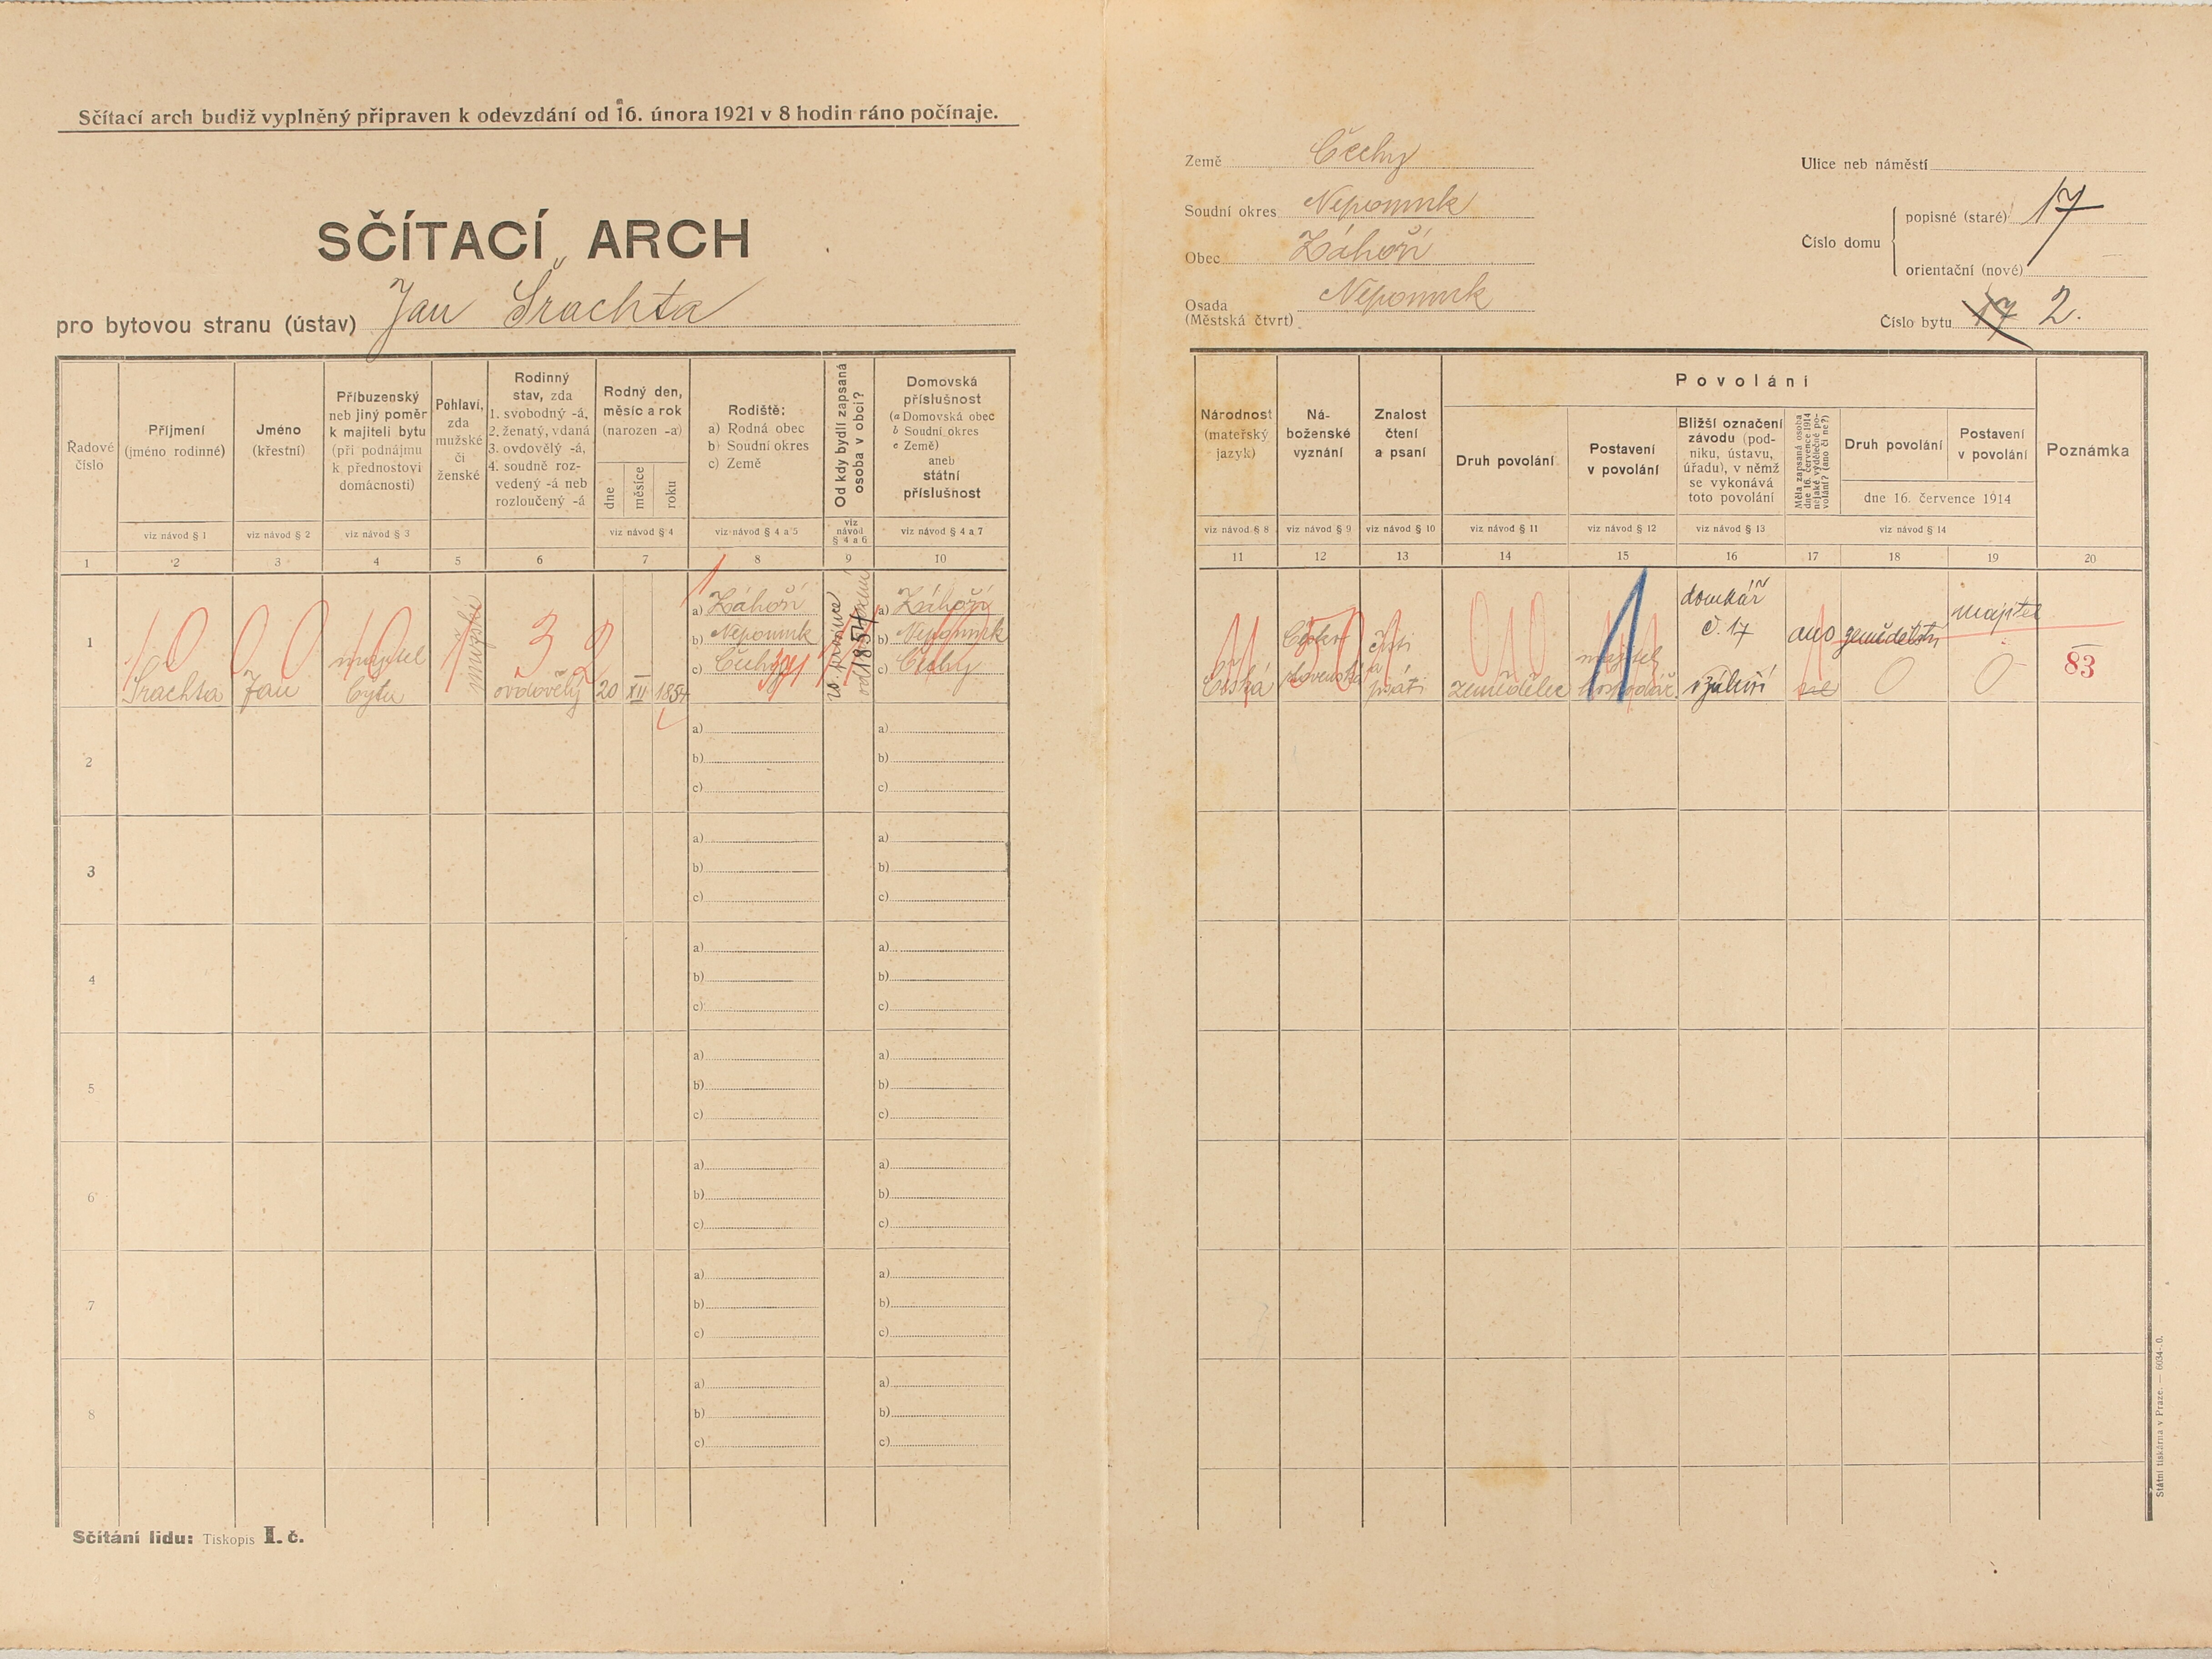 Sčítací arch budiž vyplněný připraven k odevzdání od 16. února 1921 v 8 hodin ráno počínaje.
SČÍTACÍ ARCH
pro bytovou stranu (ústav) Jan Šrachta
Země Čechy
Soudní okres Nepomuk
Obec Záhoří
Osada (Městská čtvrt) Nepomuk
Ulice neb náměstí
Číslo domu
popisné (staré) 17
orientační (nové)
Číslo bytu 17 2.
Řadové číslo
Příjmení (jméno rodinné)
Jméno (křestní)
Příbuzenský neb jiný poměr k majiteli bytu (při podnájmu k přednostovi domácnosti)
Pohlaví, zda mužské či ženské
Rodinný stav, zda 1. svobodný -á, 2. ženatý, vdaná 3. ovdovělý -á, 4. soudně rozvedený -á neb rozloučený -á
Rodný den, měsíc a rok (narozen -a)
dne
měsíce
roku
Rodiště:
a) Rodná obec
b) Soudní okres
c) Země
Od kdy bydlí zapsaná osoba v obci?
Domovská příslušnost
(a Domovská obec
b Soudní okres
c Země)
aneb
státní příslušnost
Národnost (mateřský jazyk)
Náboženské vyznání
Znalost čtení a psaní
Povolání
Druh povolání
Postavení v povolání
Bližší označení závodu (podniku, ústavu, úřadu), v němž se vykonává toto povolání
Měla zapsaná osoba dne 16. července 1914 nějaké výdělečné povolání? (ano či ne?)
Druh povolání
Postavení v povolání
dne 16. července 1914
Poznámka
viz návod § 1
viz návod § 2
viz návod § 3
viz návod § 4
viz návod § 4 a 5
viz návod § 4 a 6
viz návod § 4 a 7
viz návod § 8
viz návod § 9
viz návod § 10
viz návod § 11
viz návod § 12
viz návod § 13
viz návod § 14
1 2 3 4 5 6 7 8 9 10 11 12 13 14 15 16 17 18 19 20
1
Šrachta
Jan
majitel bytu
mužské
ovdovělý
20 XII 1854
a) Záhoří
b) Nepomuk
c) Čechy
od 1854
a) Záhoří
b) Nepomuk
c) Čechy
Česká
čísti a psáti
zemědělec
majitel hospodář
domkář
č. 17
v Záhoří
ano
zemědělství
majitel
0
0
83
2
a)
b)
c)
a)
b)
c)
3
a)
b)
c)
a)
b)
c)
4
a)
b)
c)
a)
b)
c)
5
a)
b)
c)
a)
b)
c)
6
a)
b)
c)
a)
b)
c)
7
a)
b)
c)
a)
b)
c)
8
a)
b)
c)
a)
b)
c)
Sčítání lidu: Tiskopis I. č.
Státní tiskárna v Praze. — 6034-.0.